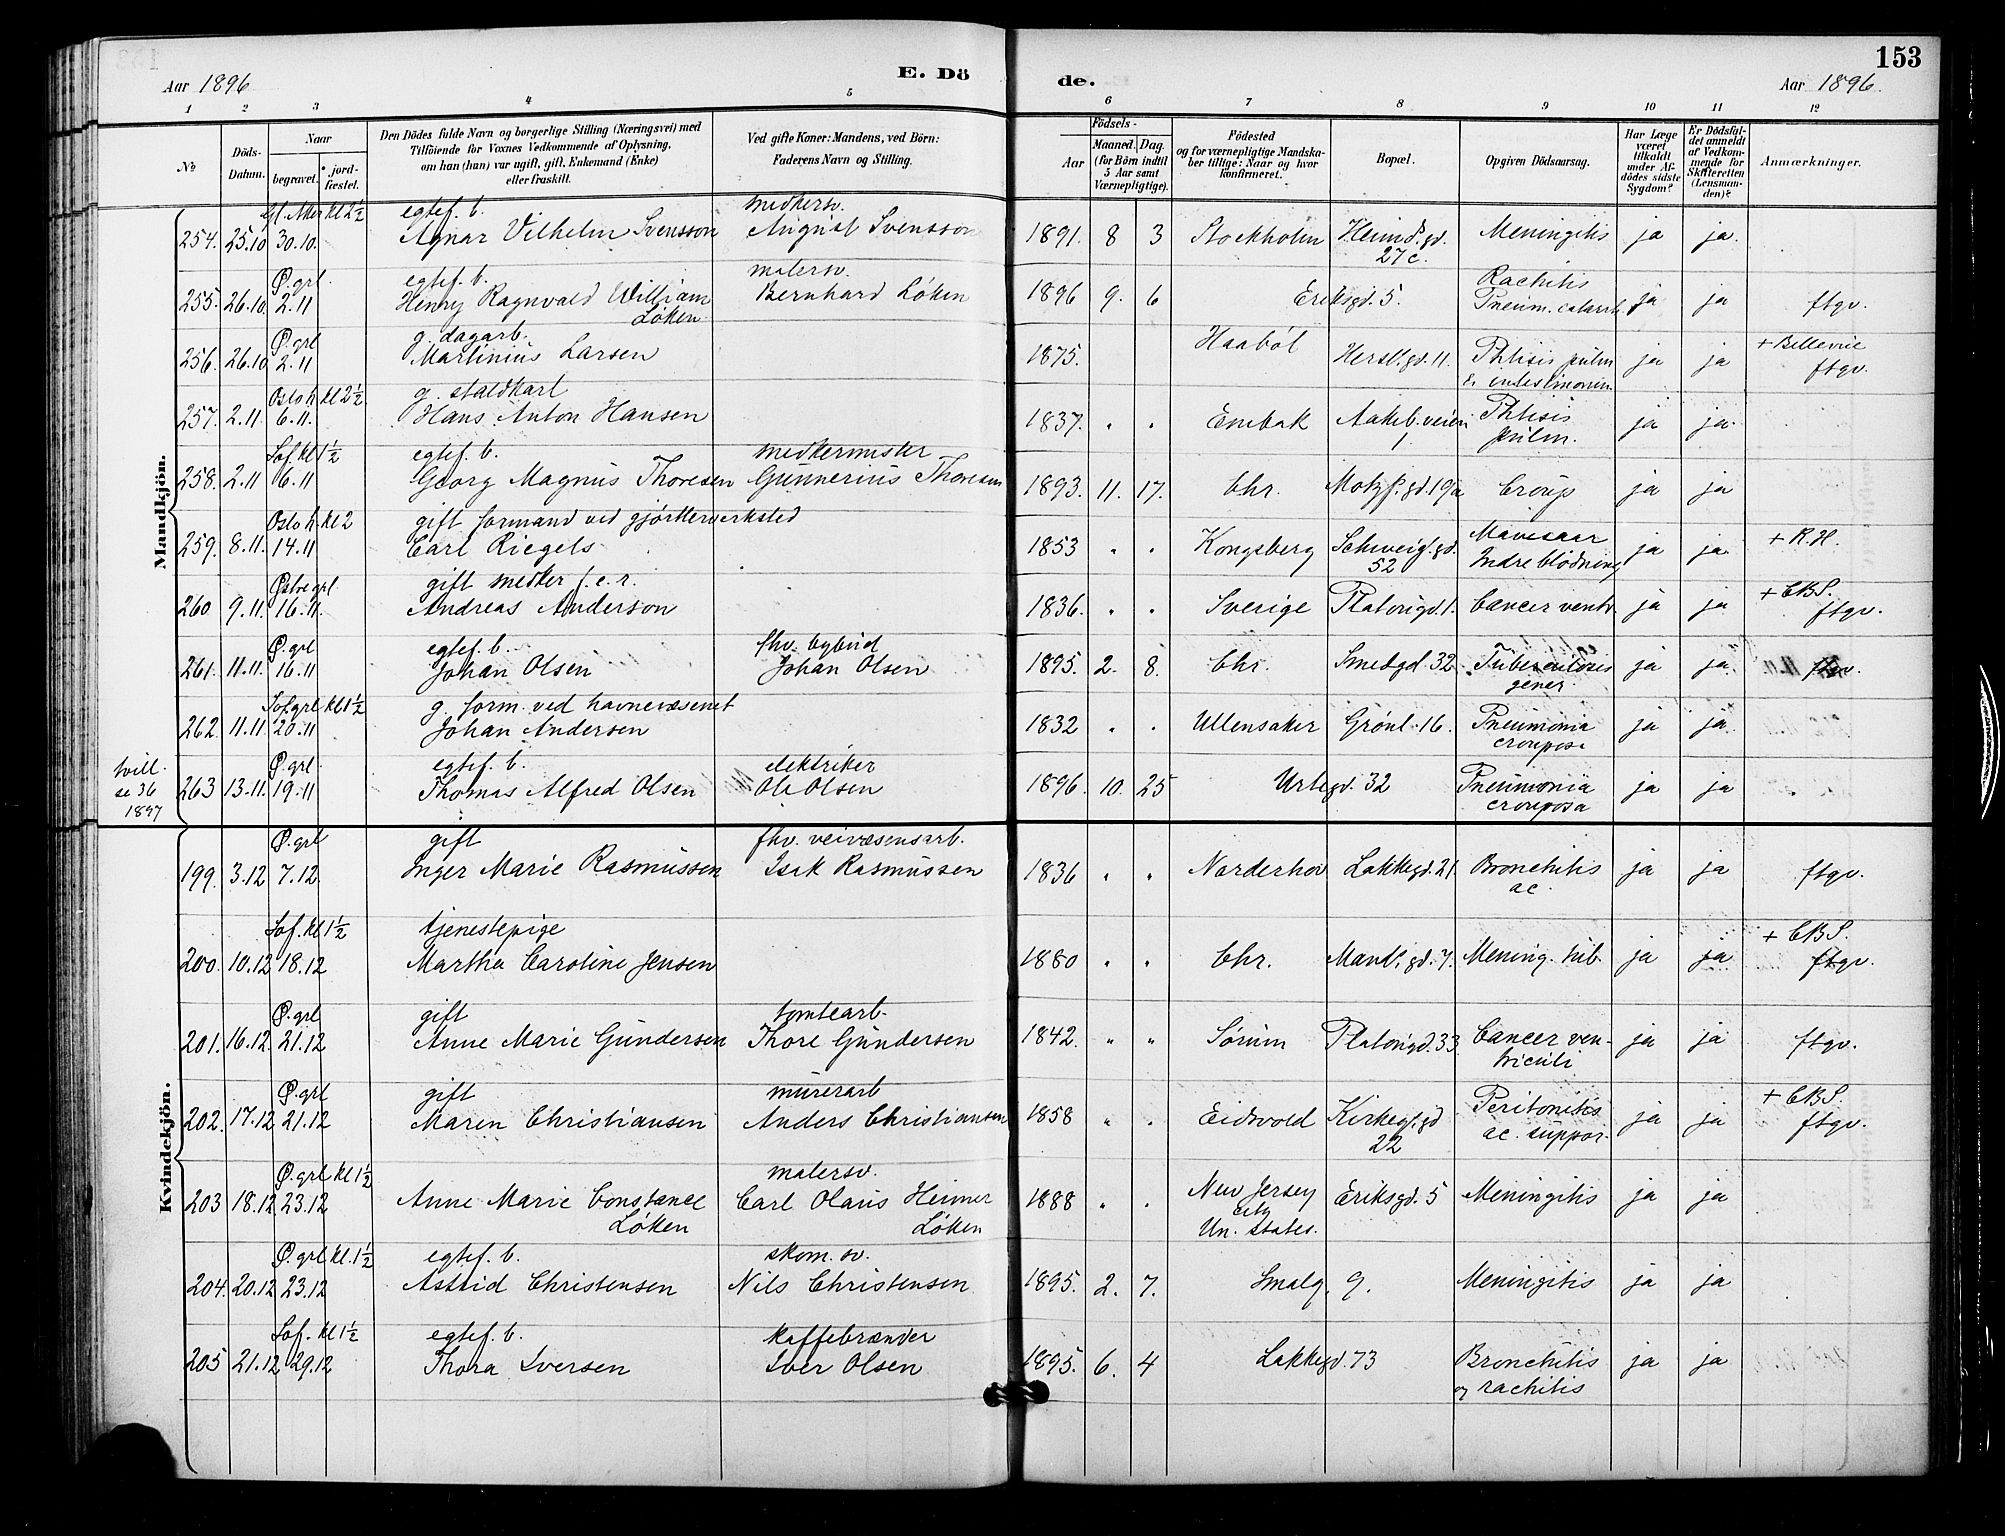 153
Aar 1896
E. Dö
de.
Aar 1896.
1 2 3 4 5 6 7 8 9 10 11 12
No
Döds-Datum.
Naar
begravet.
jord-fæstet.
Den Dödes fulde Navn og borgerlige Stilling (Næringsvei) med
Tilföiende for Voxnes Vedkommende af Oplysning,
om han (hun) var ugift, gift, Enkemand (Enke)
eller fraskilt.
Ved gifte Koner: Mandens, ved Börn:
Faderens Navn og Stilling.
Födsels-
Aar
Maaned. Dag.
(for Börn indtil
5 Aar samt
Værnepligtige).
Födested
og for værnepligtige Mandska-
ber tillige: Naar og hvor
konfirmeret.
Bopæl.
Opgiven Dödsaarsag.
Har Læge
været
tilkaldt
under Af-
dödes sidste
Sygdom?
Er Dödsfal-
det anmeldt
af Vedkom-
mende for
Skifteretten
(Lensman-
den)?
Anmærkninger.
Mandkjön.
Gl. Aker kl 2½ egtef. b. snedkersv.
254. 25.10 30.10. Agnar Vilhelm Svensson August Svensson 1891. 8 3 Stockholm Heimd. gd. 27c. Meningitis ja ja.
Ø. grl. egtef. b. malersv.
255. 26.10. 2.11 Henry Ragnvald William Løken Bernhard Løken 1896 9. 6 Eriksgd. 5. Rachitis Pneum. catarrh. ja ja ftgv.
Ø. grl. g. dagarb.
256. 26.10 2.11 Martinius Larsen 1875. Haabøl Hersl. gd. 11. Phtisis pulm & intestinorum ja ja + Bellevue ftgv.
Oslo h. kl 2½ g. staldkarl
257. 2.11 6.11. Hans Anton Hansen 1837. " " Enebak Aakeb. veien 1 Phtisis pulm. ja ja.
Sof. kl 1½ egtef. b. snedkermester
258. 2.11 6.11 Georg Magnus Thoresen Gunnerius Thoresen 1893. 11. 17. Chr. Motzf. gd. 19a Croup ja ja
Oslo h. kl 2 gift formand ved gjørtlerverksted
259. 8.11. 14.11 Carl Riegels 1853 " " Kongsberg Schweig. gd. 52 Mavesaar Indre blødning ja ja + R.H.
Østre grl gift snedker f.e.r.
260 9.11. 16.11. Andreas Anderson 1836. " " Sverige Platousgd. 1. Cancer ventr. ja ja + CBS. ftgv.
Ø. grl egtef. b. fhv. bybud
261. 11.11. 16.11 Johan Olsen Johan Olsen 1895. 2. 8. Chr. Smedgd. 32 Tuberculosis gener. ja ja ftgv.
Sof. grl kl 1½ g. form. ved havnevæsenet
262. 11.11. 20.11 Johan Andersen 1832 " " Ullensaker Grønl. 16. Pneumonia crouposa ja ja.
tvill.
se 36
1897
Ø. grl. egtef. b. elektriker
263 13.11. 19.11 Thomas Alfred Olsen Ole Olsen 1896. 10. 25 Urtegd. 32 Pneumonia crouposa ja ja
Kvindekjön.
Ø. grl gift fhv. veivæsensarb.
199. 3.12 7.12. Inger Marie Rasmussen Isak Rasmussen 1836 " " Norderhov Lakkegd. 21 Bronchitis ac. ja ja ftgv.
Sof. kl 1½ tjenestepige
200. 10.12 18.12 Martha Caroline Jensen 1880 " " Chr. Mandl. gd. 7. Mening. tub. ja ja + CBS. ftgv.
Ø. grl gift tomtearb.
201. 16.12. 21.12 Anne Marie Gundersen Thore Gundersen 1842. " " Sørum Platousgd. 33 Cancer ven-triculi ja ja ftgv.
Ø. grl gift murerarb
202. 17.12 21.12 Maren Christiansen Anders Christiansen 1858 " " Eidsvold Kirkegd. gd 22 Peritonitis ac. suppur. ja ja + CBS. ftgv.
Ø. grl kl 1½ malersv.
203 18.12 23.12 Anne Marie Constance Løken Carl Olaus Heimer Løken 1888 " " New Jersey city Un. States. Eriksgd. 5 Meningitis ja ja
Ø. grl kl. 1½ egtef. b. skom. sv.
204. 20.12 23.12 Astrid Christensen Nils Christensen 1895. 2. 7. Smalg. 9. Meningitis ja ja
Sof. kl 1½ egtef. b. kaffebrænder
205 21.12 29.12 Thora Iversen Iver Olsen 1895. 6. 4 Lakkegd. 73 Bronchitis og rachitis ja ja